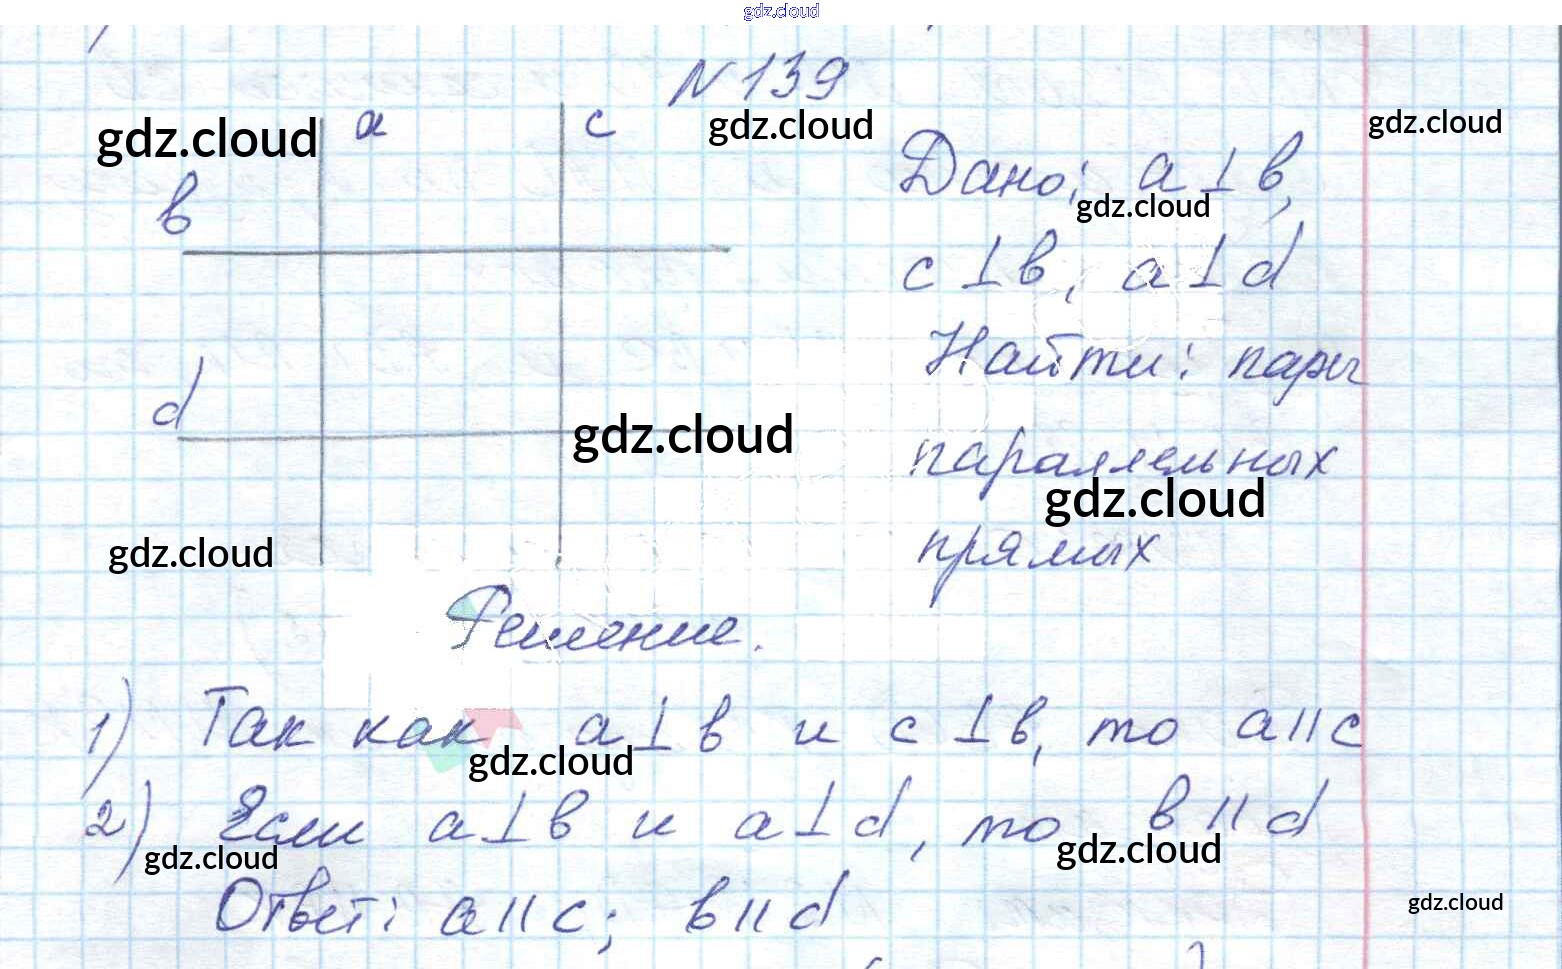 gdz.cloud
N 139
a c
gdz.cloud gdz.cloud gdz.cloud
Дано: a ⊥ в,
в
gdz.cloud
c ⊥ в, a ⊥ d
Найти: пары
d
gdz.cloud
параллельных
gdz.cloud
gdz.cloud
прямых
Решение.
1) Так как a ⊥ в и c ⊥ в, то a || c
gdz.cloud
2) Если a ⊥ в и a ⊥ d, то в || d
gdz.cloud gdz.cloud
Ответ: a || c; в || d
gdz.cloud